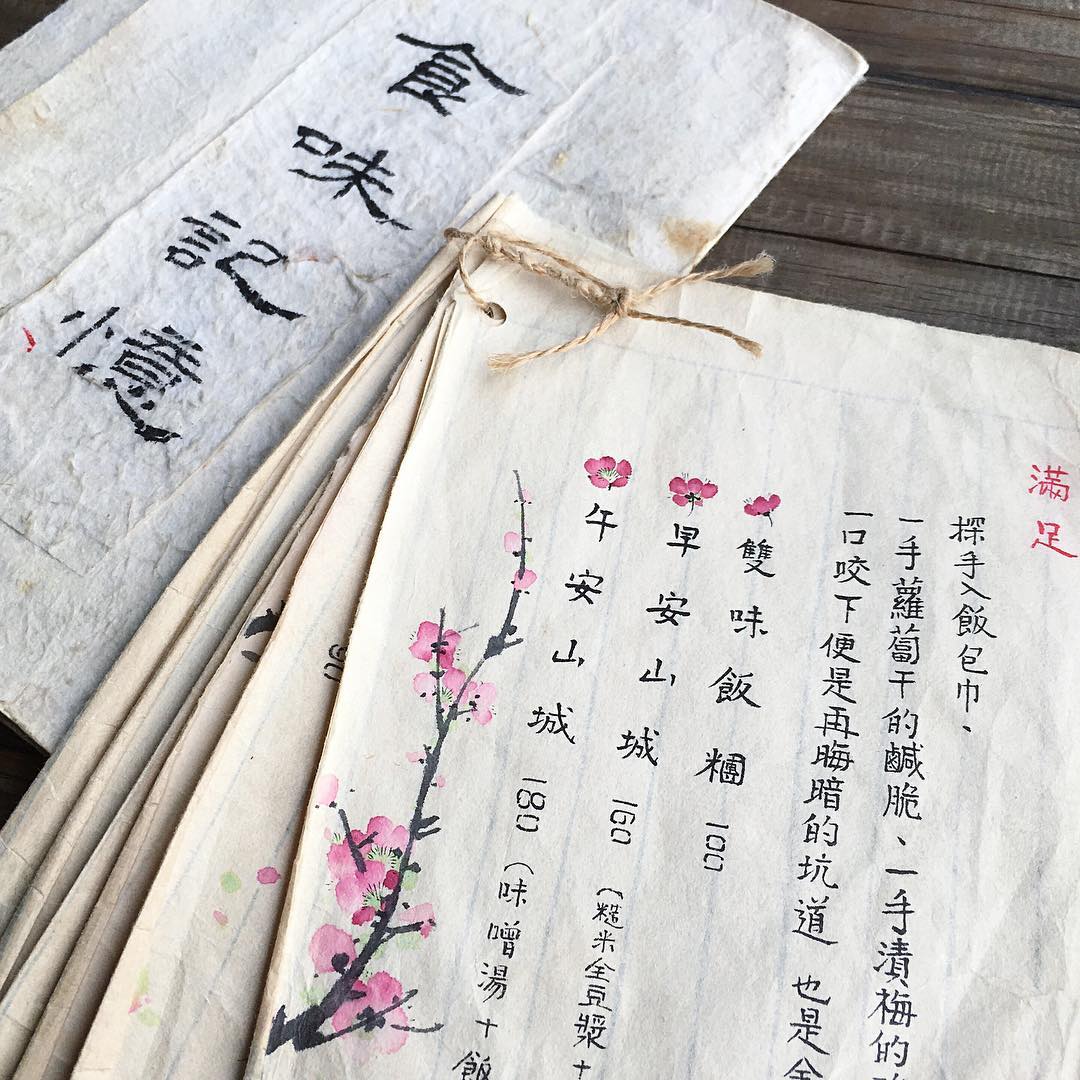 食味記憶
滿足
探手入飯包巾、
一手蘿蔔干的鹹脆、一手漬梅的
一口咬下便是再晦暗的坑道 也是全
雙味飯糰 100
早安山城 160 (糙米全豆漿+
午安山城 180 (味噌湯+飯